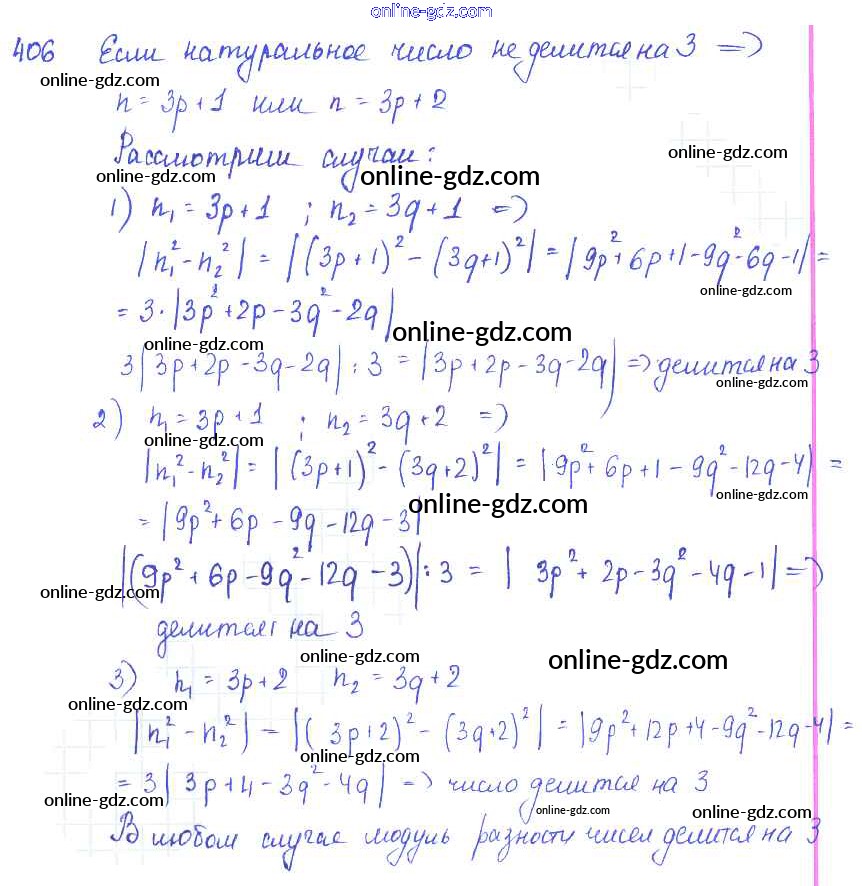 online-gdz.com
406 Если натуральное число не делится на 3 =>
online-gdz.com
n = 3p + 1 или n = 3p + 2
Рассмотрим случаи:
online-gdz.com
online-gdz.com
1) n₁ = 3p + 1 ; n₂ = 3q + 1 =>
|n₁² - n₂²| = |(3p + 1)² - (3q + 1)²| = |9p² + 6p + 1 - 9q² - 6q - 1| =
online-gdz.com
= 3 · |3p² + 2p - 3q² - 2q|
online-gdz.com
3|3p + 2p - 3q - 2q| : 3 = |3p + 2p - 3q - 2q| => делится на 3
online-gdz.com
2) n₁ = 3p + 1 ; n₂ = 3q + 2 =>
online-gdz.com
|n₁² - n₂²| = |(3p + 1)² - (3q + 2)²| = |9p² + 6p + 1 - 9q² - 12q - 4| =
online-gdz.com
online-gdz.com
= |9p² + 6p - 9q - 12q - 3|
|(9p² + 6p - 9q² - 12q - 3)| : 3 = | 3p² + 2p - 3q² - 4q - 1| =>
online-gdz.com
online-gdz.com
делится на 3
online-gdz.com
online-gdz.com
3) n₁ = 3p + 2 n₂ = 3q + 2
online-gdz.com
online-gdz.com
|n₁² - n₂²| = |(3p + 2)² - (3q + 2)²| = |9p² + 12p + 4 - 9q² - 12q - 4| =
online-gdz.com
= 3| 3p + 4 - 3q² - 4q| => число делится на 3
online-gdz.com
online-gdz.com
online-gdz.com
В любом случае модуль разности чисел делится на 3